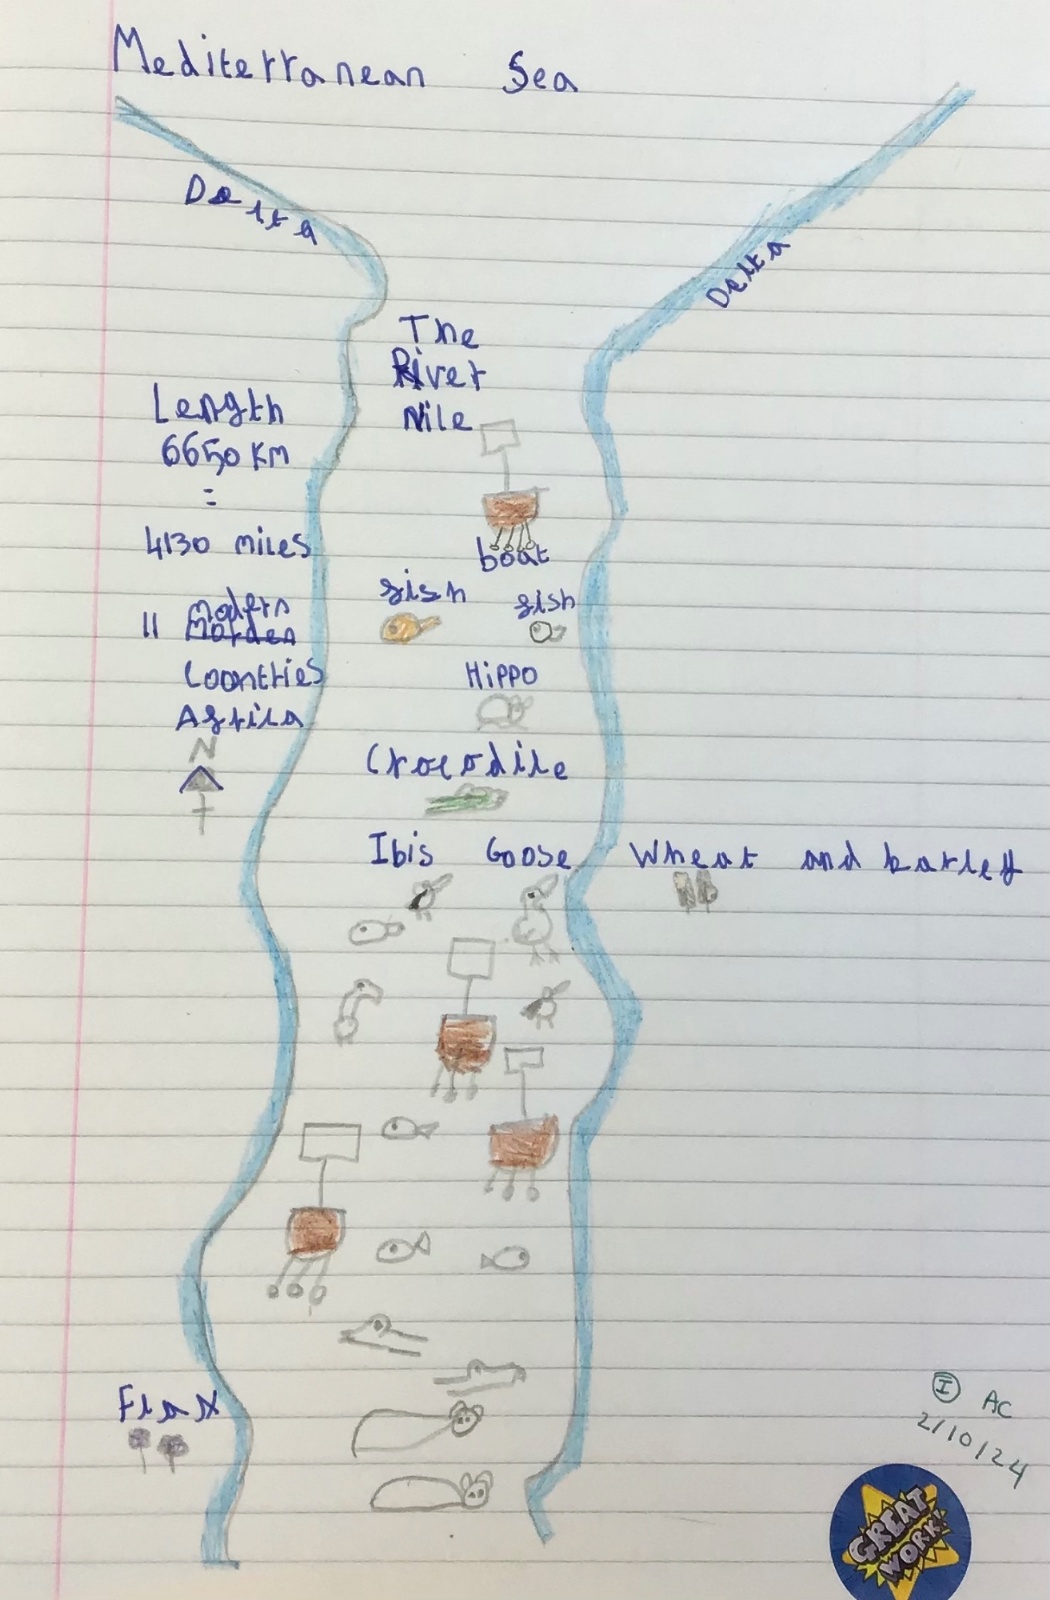 Mediterranean Sea
Delta
Delta
The
River
Nile
Length
6650 Km
=
4130 miles
boat
fish fish
11 modern
Morden
Coontries
Africa
Hippo
N
Crocodile
Ibis Goose Wheat and barley
Flax
I AC
2/10/24
GREAT
WORK!